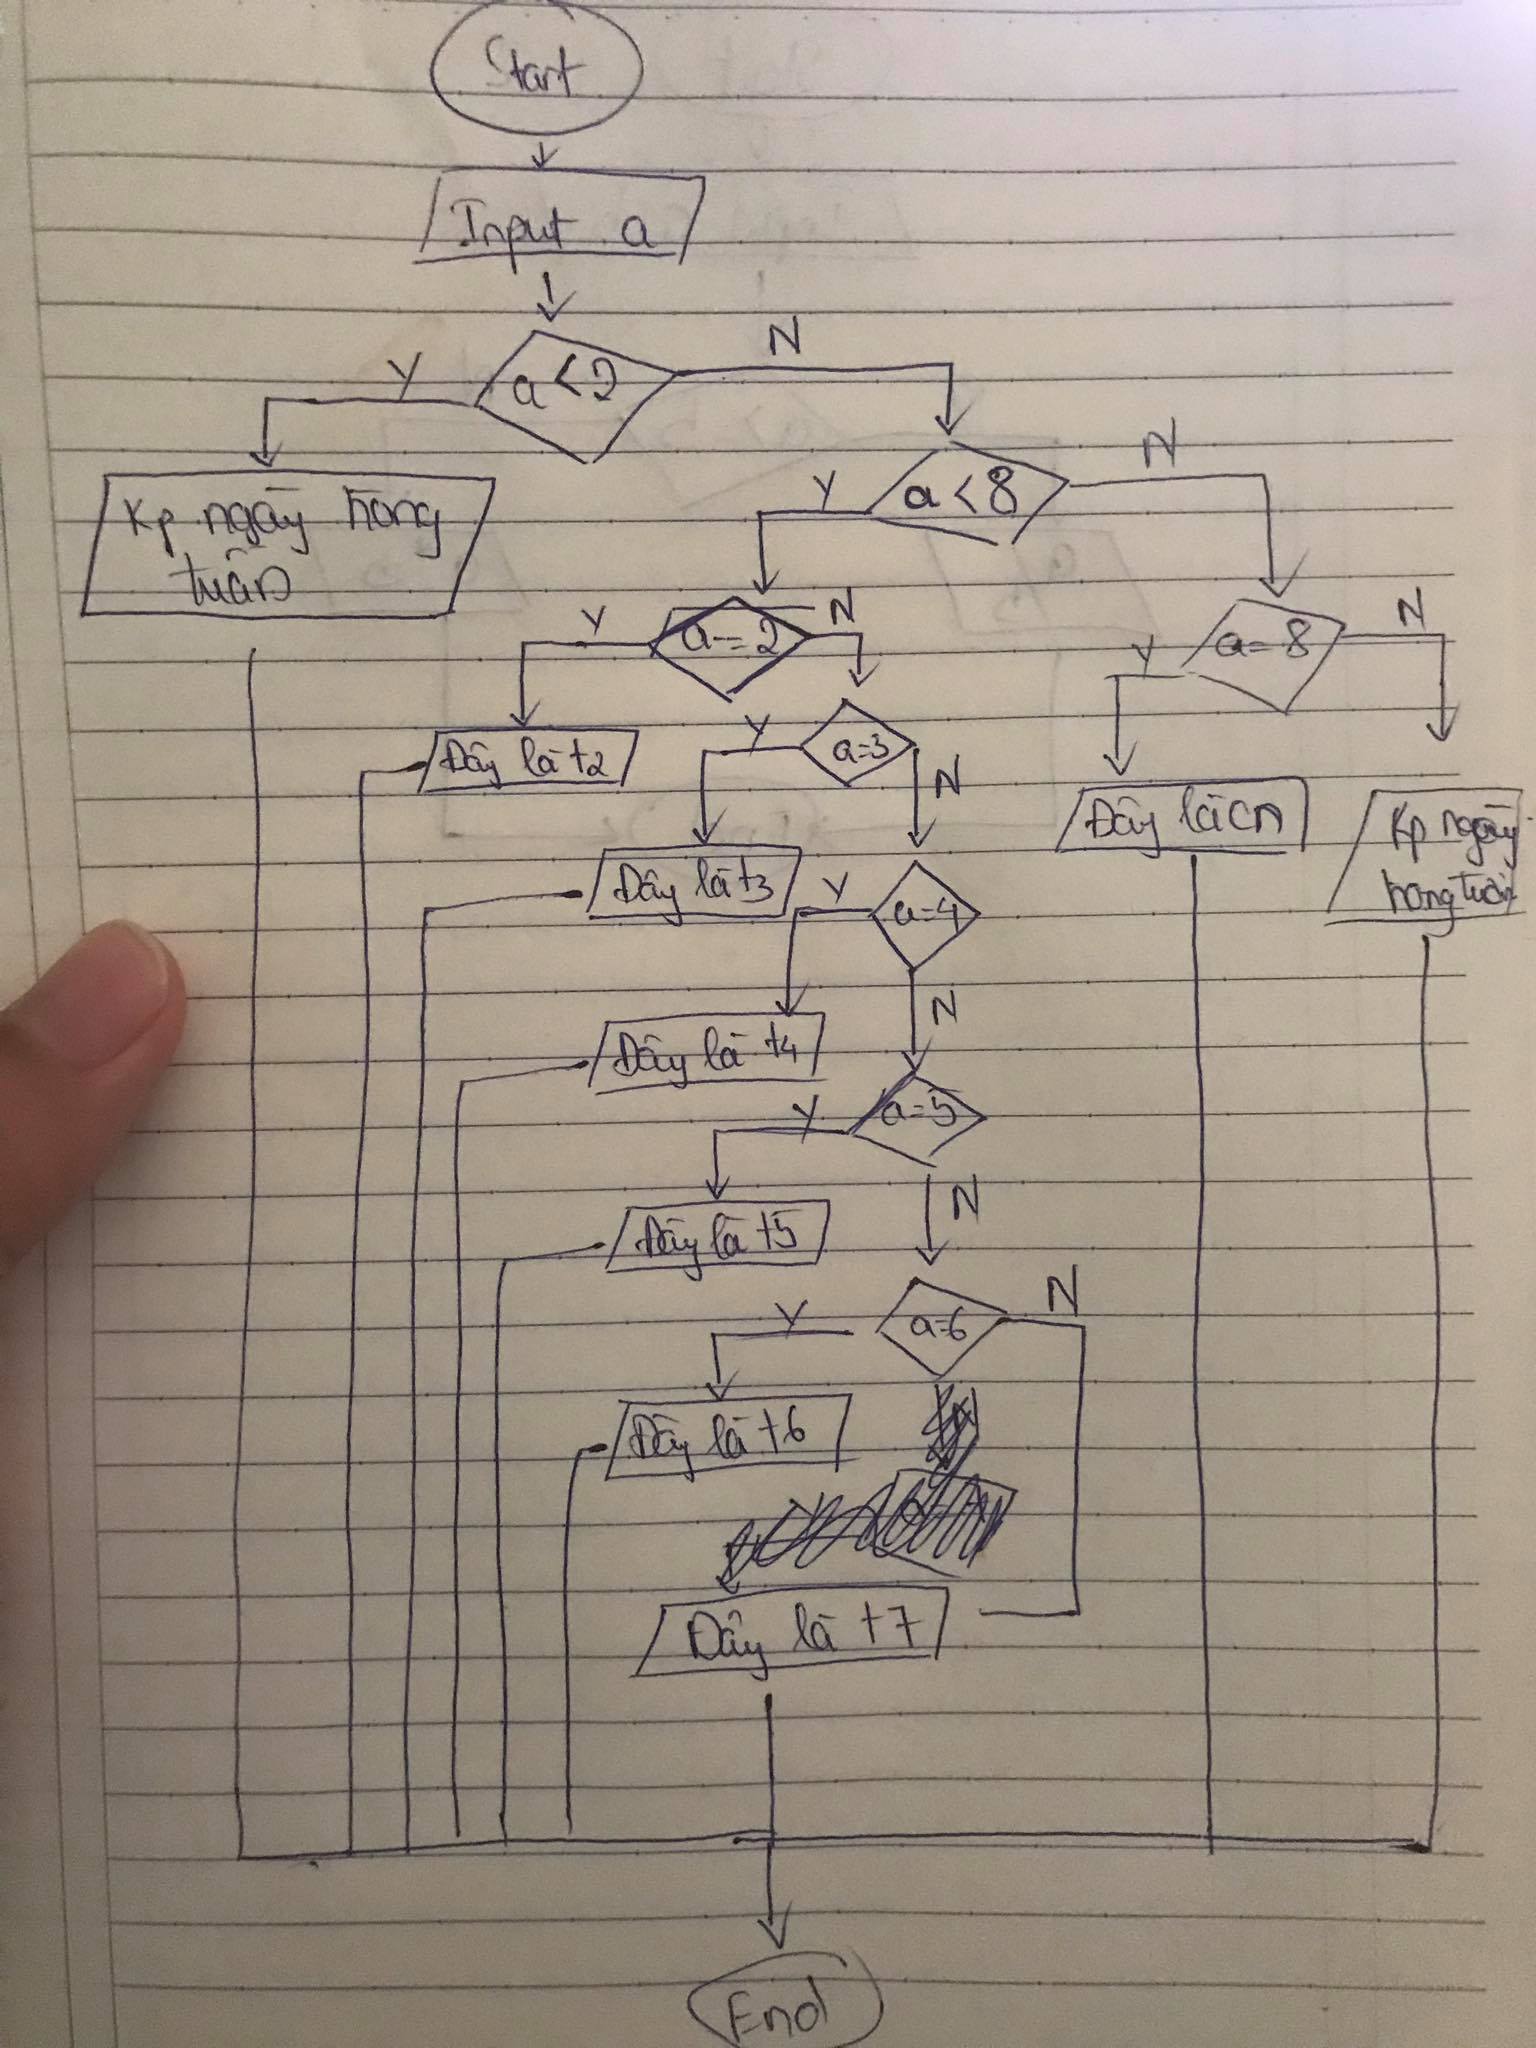 Start
Input a
a < 2
Y
N
Kp ngày tròng
tuần
a < 8
Y
N
a = 2
Y
N
a = 8
Y
N
Đây là t2
a=3
Y
N
Đây là CN
Kp ngày
trong tuần
Đây là t3
a=4
Y
N
Đây là t4
a=5
Y
N
Đây là t5
a=6
Y
N
Đây là t6
Đây là t7
End